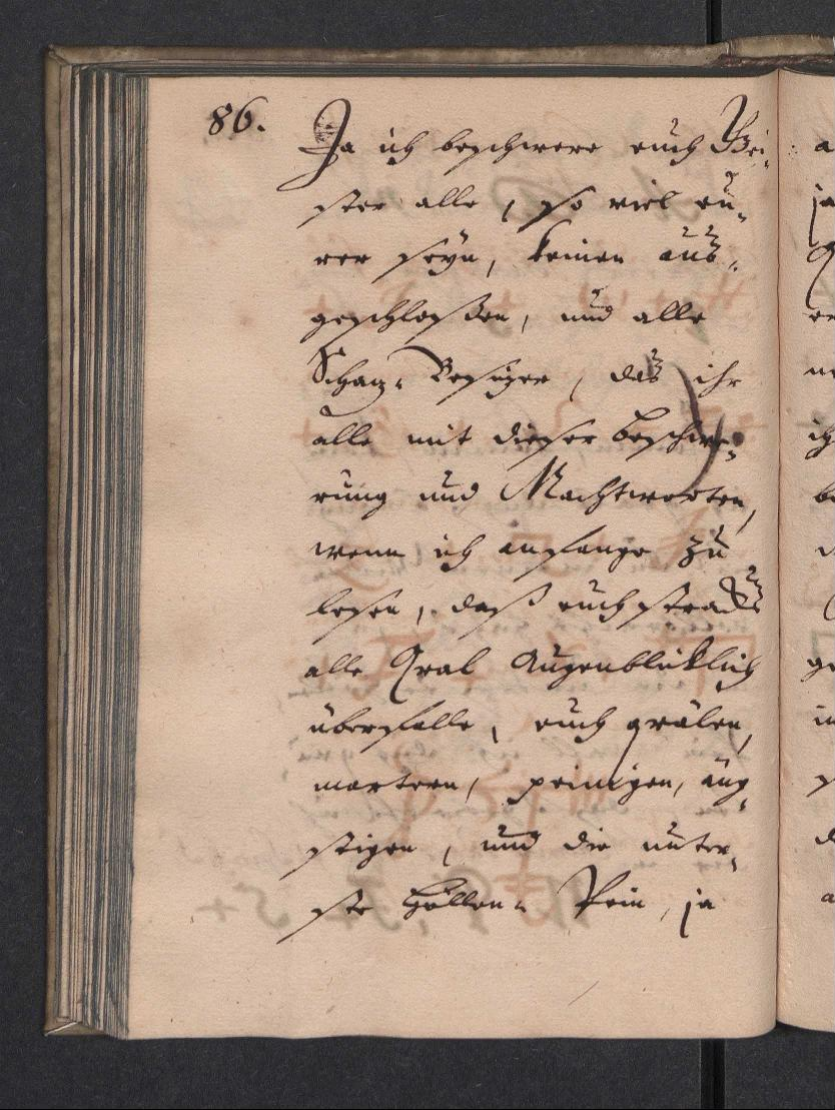 86.
Ja ich beschwere euch Gei-
ster alle, so viel eu-
rer seyn, keinen aus-
geschloßen, und alle
Schaz- Besizer, das ihr
alle mit dieser beschwe-
rung und Machtworten,
wenn ich anfange zu
lesen, daß euch stracks
alle Qval Augenblicklich
überfalle, euch qvälen,
martern, peinigen, äng-
stigen, und die unter-
ste Höllen- Pein, ja